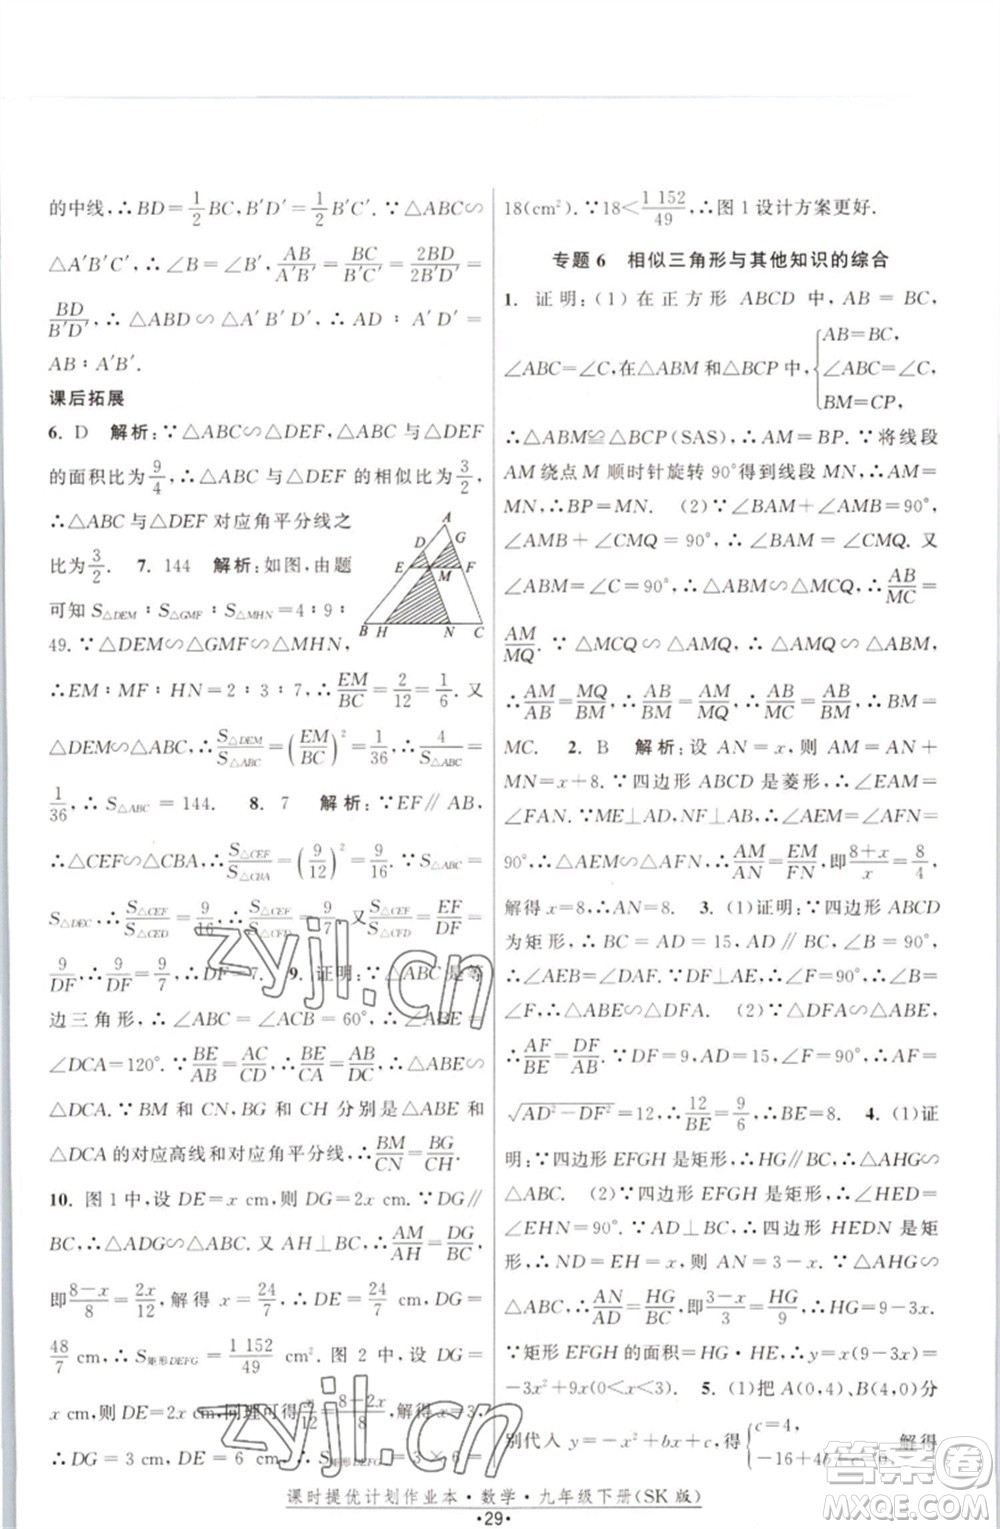 的中线,∴BD=1/2BC,B′D′=1/2B′C′.∵△ABC∽
△A′B′C′,∴AB/A′B′=BC/B′C′=2BD/2B′D′=
BD/B′D′,∴△ABD∽△A′B′D′,∴AD∶A′D′=
AB∶A′B′.
课后拓展
6. D 解析:∵△ABC∽△DEF,△ABC与△DEF
的面积比为9/4,∴△ABC与△DEF的相似比为3/2,
∴△ABC与△DEF对应角平分线之
比为3/2. 7. 144 解析:如图,由题
可知S△DEM∶S△GMF∶S△MHN=4∶9∶
49.∵△DEM∽△GMF∽△MHN,
A
D
G
E
M
F
B
H
N
C
∴EM∶MF∶HN=2∶3∶7,∴EM/BC=2/12=1/6.又
△DEM∽△ABC,∴S△DEM/S△ABC=(EM/BC)²=1/36,∴4/S△ABC=
1/36,∴S△ABC=144. 8. 7 解析:∵EF∥AB,
∴△CEF∽△CBA,∴S△CEF/S△CBA=(9/12)²=9/16.∵S△ABC=
S△DEC,∴S△CEF/S△CED=9/16,∴S△CEF/S△CFD=9/7.又S△CEF/S△CFD=EF/DF=
9/DF,∴9/DF=9/7,∴DF=7. 9. 证明:∵△ABC是等
边三角形,∴∠ABC=∠ACB=60°,∴∠ABE=
∠DCA=120°.∵BE/AB=AC/CD,∴BE/AC=AB/CD,∴△ABE∽
△DCA.∵BM和CN,BG和CH分别是△ABE和
△DCA的对应高线和对应角平分线,∴BM/CN=BG/CH.
10. 图1中,设DE=x cm,则DG=2x cm.∵DG∥
BC,∴△ADG∽△ABC.又AH⊥BC,∴AM/AH=DG/BC,
即8-x/8=2x/12,解得x=24/7,∴DE=24/7 cm,DG=
48/7 cm,∴S矩形DEFG=1 152/49 cm².图2中,设DG=
x cm,则DE=2x cm,同理可得x/12=8-2x/8,解得x=3,
∴DG=3 cm,DE=6 cm,∴S矩形DEFG=3×6=
18(cm²).∵18<1 152/49,∴图1设计方案更好.
专题6 相似三角形与其他知识的综合
1. 证明:(1)在正方形ABCD中,AB=BC,
∠ABC=∠C,在△ABM和△BCP中,{AB=BC,
∠ABC=∠C,
BM=CP,
∴△ABM≌△BCP(SAS),∴AM=BP.∵将线段
AM绕点M顺时针旋转90°得到线段MN,∴AM=
MN,∴BP=MN. (2)∵∠BAM+∠AMB=90°,
∠AMB+∠CMQ=90°,∴∠BAM=∠CMQ.又
∠ABM=∠C=90°,∴△ABM∽△MCQ,∴AB/MC=
AM/MQ.∵△MCQ∽△AMQ,∴△AMQ∽△ABM,
∴AM/AB=MQ/BM,∴AB/BM=AM/MQ,∴AB/MC=AB/BM,∴BM=
MC. 2. B 解析:设AN=x,则AM=AN+
MN=x+8.∵四边形ABCD是菱形,∴∠EAM=
∠FAN.∵ME⊥AD,NF⊥AB,∴∠AEM=∠AFN=
90°,∴△AEM∽△AFN,∴AM/AN=EM/FN,即8+x/x=8/4,
解得x=8,∴AN=8. 3. (1)证明:∵四边形ABCD
为矩形,∴BC=AD,AD∥BC,∠B=90°,
∴∠AEB=∠DAF.∵∠F=90°,∴∠B=
∠F,∴△ABE∽△DFA. (2)∵△ABE∽△DFA,
∴AF/BE=DF/AB.∵DF=9,AD=15,∠F=90°,∴AF=
√AD²-DF²=12,∴12/BE=9/6,∴BE=8. 4. (1)证
明:∵四边形EFGH是矩形,∴HG∥BC,∴△AHG∽
△ABC. (2)∵四边形EFGH是矩形,∴∠HED=
∠EHN=90°.∵AD⊥BC,∴四边形HEDN是矩
形,∴ND=EH=x,则AN=3-x.∵△AHG∽
△ABC,∴AN/AD=HG/BC,即3-x/3=HG/9,∴HG=9-3x.
∵矩形EFGH的面积=HG·HE,∴y=x(9-3x)=
-3x²+9x. 5. (1)把A(0,4),B(4,0)分
别代入y=-x²+bx+c,得{c=4,
-16+4b+c=0,解得
课时提优计划作业本·数学·九年级下册(SK版)
·29·
zyjl.cn
zyjl.cn
答案圈